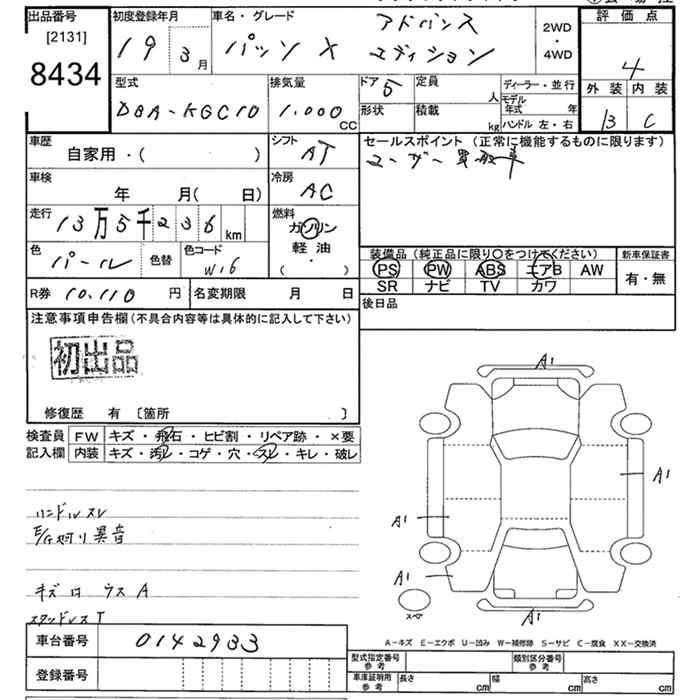 出品番号
[2131]
8434
初度登録年月
19 3月
車名・グレード
パッソ X
アドバンス
エディション
2WD
・
4WD
評価点
4
外装 内装
B C
型式
DBA-KGC10
排気量
1.000 CC
ドア 5
定員 人
形状
積載 kg
ディーラー・並行
モデル年式 年
ハンドル 左・右
車歴
自家用・( )
シフト
AT
車検
年 月( 日)
冷房
AC
走行
13万5千236 km
燃料
ガソリン
軽油
・
( )
色
パール
色替
色コード
W16
R券 10.110 円
名変期限 月 日
セールスポイント (正常に機能するものに限ります)
ユーザー買取車
装備品 (純正品に限り○をつけてください)
PS PW ABS エアB AW
SR ナビ TV カワ
新車保証書
有・無
後日品
注意事項申告欄(不具合内容等は具体的に記入して下さい)
初出品
修復歴 有 [箇所 ]
検査員
記入欄
FW キズ・飛石・ヒビ割・リペア跡・×要
内装 キズ・汚レ・コゲ・穴・スレ・キレ・破レ
ハンドルスレ
E/G廻り異音
キズ
スタッドレスT
A1
A1
A1
A1
A1
スペア
A-キズ E-エクボ U-凹み W-補修跡 S-サビ C-腐食 XX-交換済
車台番号 0142933
登録番号
型式指定番号
参考
類別区分番号
参考
車庫証明用
参考
長さ cm
幅 cm
高さ cm